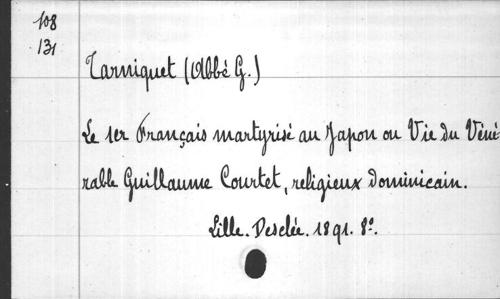 108
131
Tarniquet (Abbé G.)
Le 1er Français martyrisé au Japon ou Vie du Véné
rable Guillaume Courtet, religieux dominicain.
Lille. Desclée. 1891. 8º.